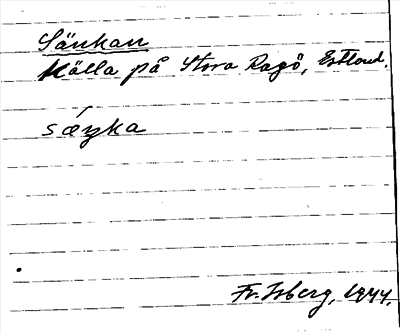 Sänkan
Källa på Stora Ragö, Estland.
sǽŋka
Fr. Isberg, 1944.